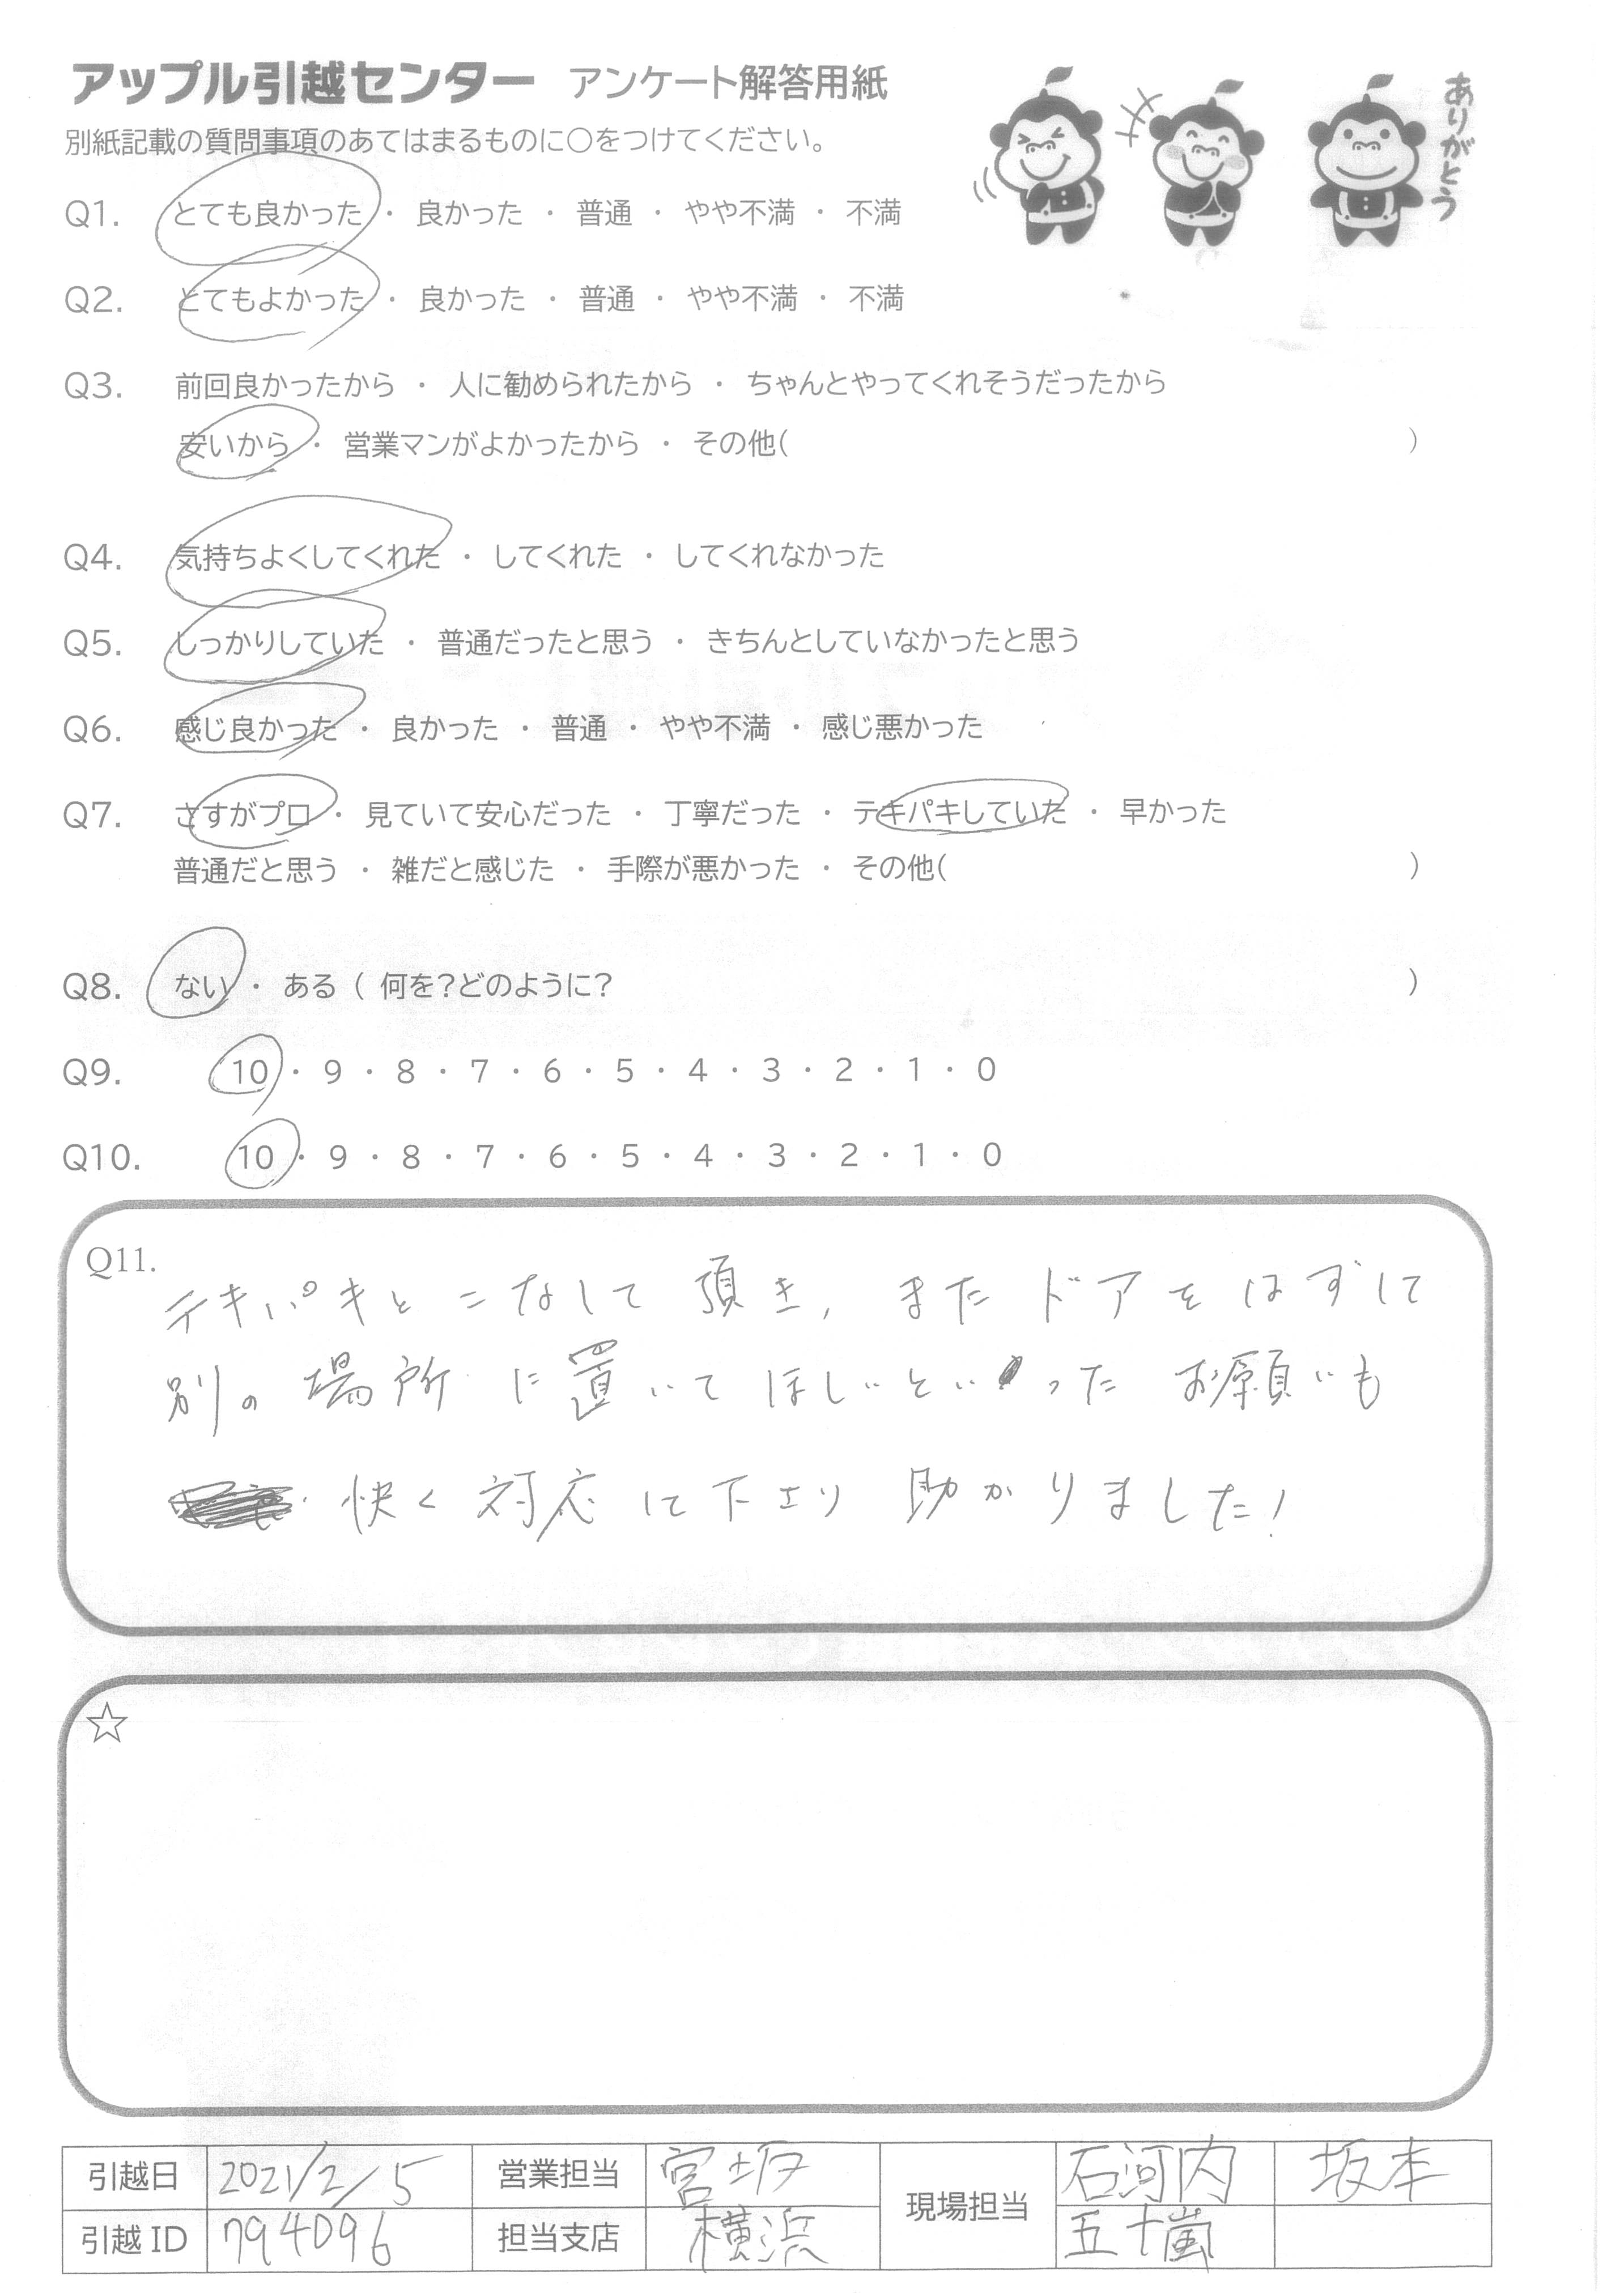 アップル引越センター アンケート解答用紙
ありがとう
別紙記載の質問事項のあてはまるものに○をつけてください。
Q1. とても良かった ・ 良かった ・ 普通 ・ やや不満 ・ 不満
Q2. とてもよかった ・ 良かった ・ 普通 ・ やや不満 ・ 不満
Q3. 前回良かったから ・ 人に勧められたから ・ ちゃんとやってくれそうだったから
安いから ・ 営業マンがよかったから ・ その他( )
Q4. 気持ちよくしてくれた ・ してくれた ・ してくれなかった
Q5. しっかりしていた ・ 普通だったと思う ・ きちんとしていなかったと思う
Q6. 感じ良かった ・ 良かった ・ 普通 ・ やや不満 ・ 感じ悪かった
Q7. さすがプロ ・ 見ていて安心だった ・ 丁寧だった ・ テキパキしていた ・ 早かった
普通だと思う ・ 雑だと感じた ・ 手際が悪かった ・ その他( )
Q8. ない ・ ある ( 何を?どのように? )
Q9. 10 ・ 9 ・ 8 ・ 7 ・ 6 ・ 5 ・ 4 ・ 3 ・ 2 ・ 1 ・ 0
Q10. 10 ・ 9 ・ 8 ・ 7 ・ 6 ・ 5 ・ 4 ・ 3 ・ 2 ・ 1 ・ 0
Q11.
テキパキとこなして頂き、またドアをはずして
別の場所に置いてほしいといったお願いも
快く対応して下さり助かりました!
☆
引越日 2021/2/5 営業担当 宮坂 現場担当 石河内 坂本
引越ID 794096 担当支店 横浜 五十嵐